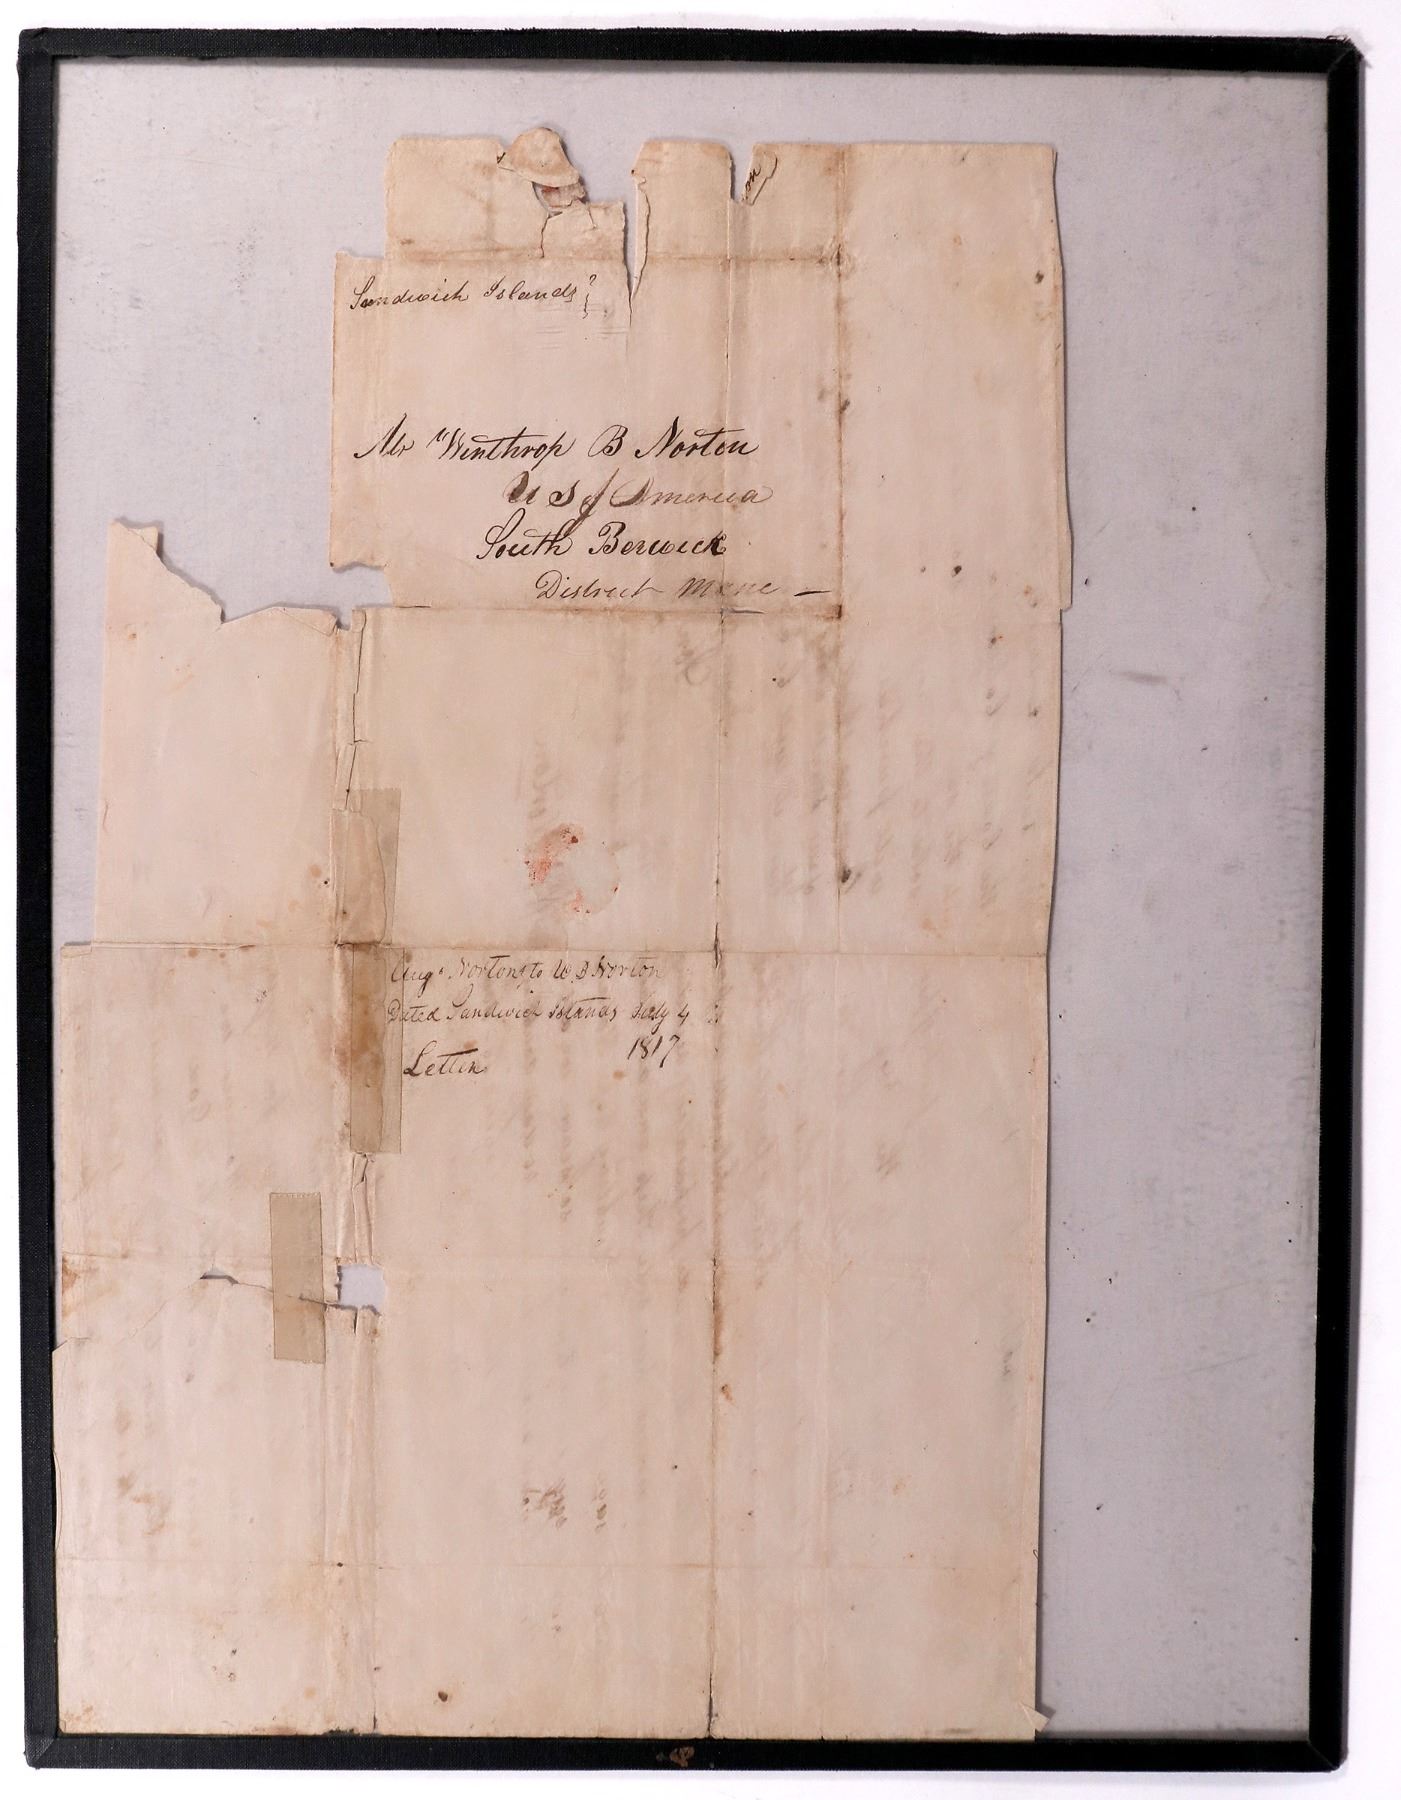 on
Sandwich Islands
Mr Winthrop B Norton
U S of America
South Berwick
District Mane —
Augs Norton to W. B Norton
Dated Sandwich Islands July 4
1817
Letter